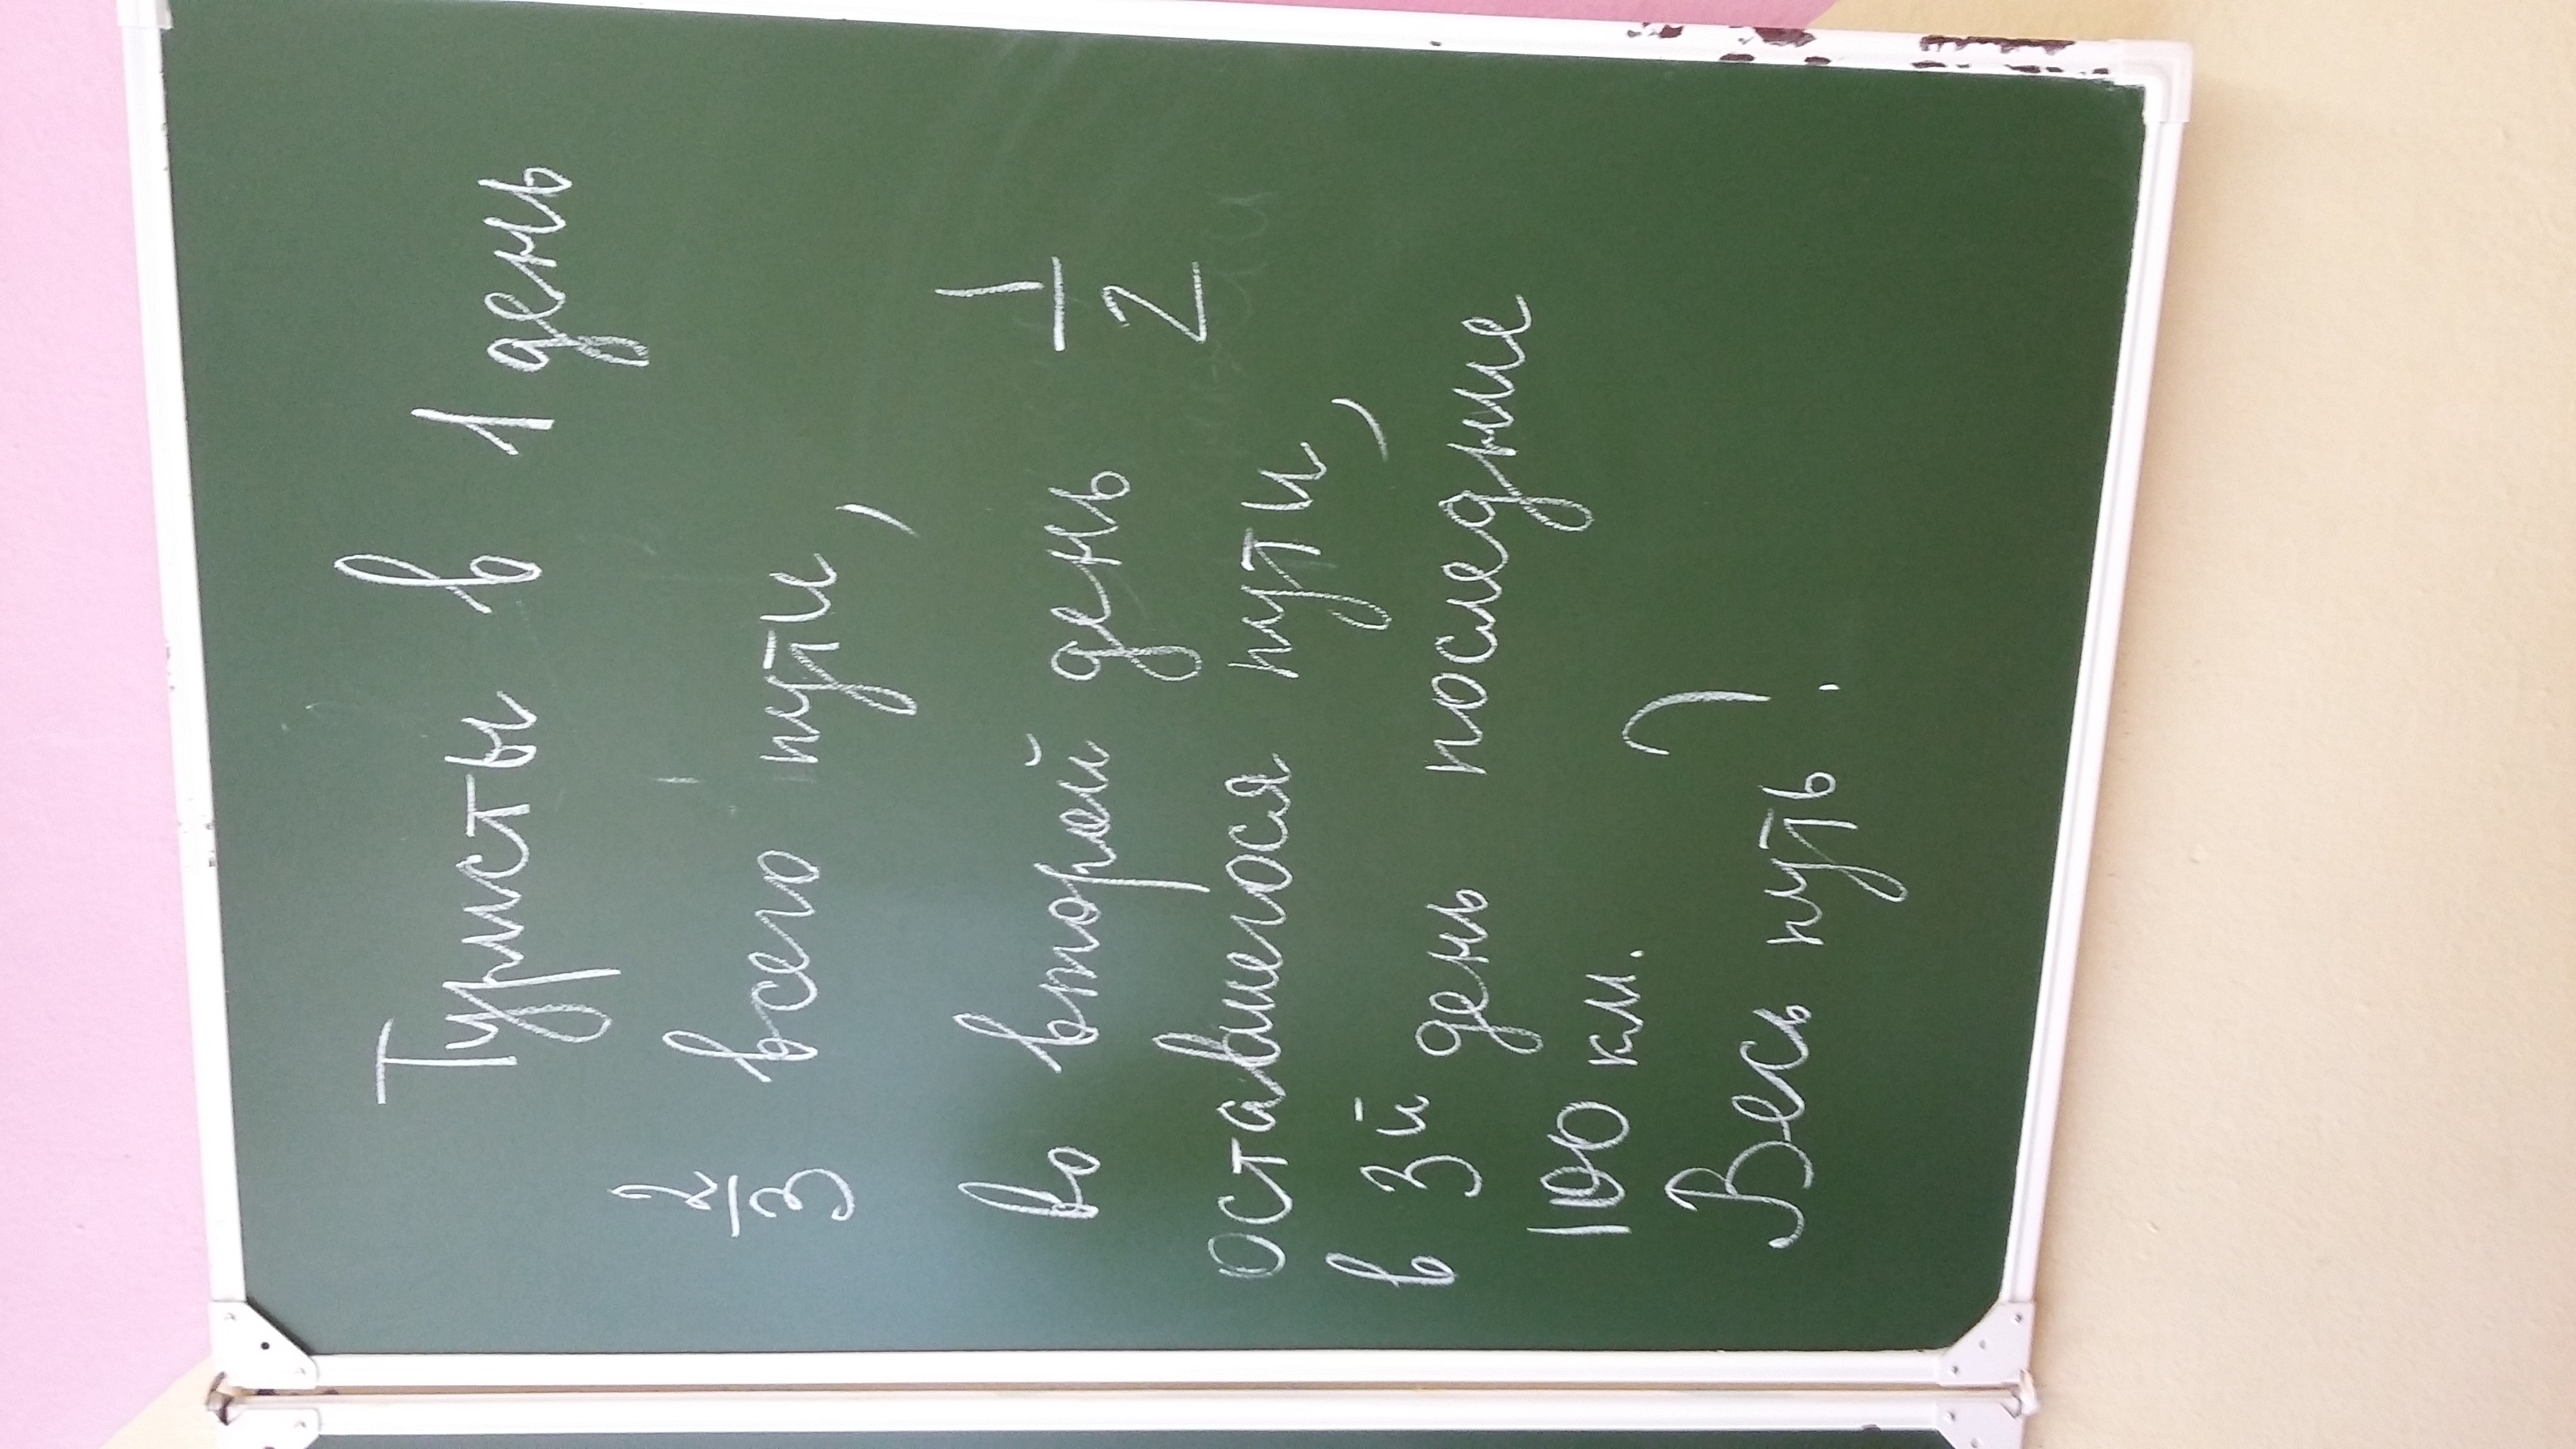 Туристы в 1 день
2/3 всего пути,
во второй день 1/2
оставшегося пути,
в 3й день последние
100 км.
Весь путь?